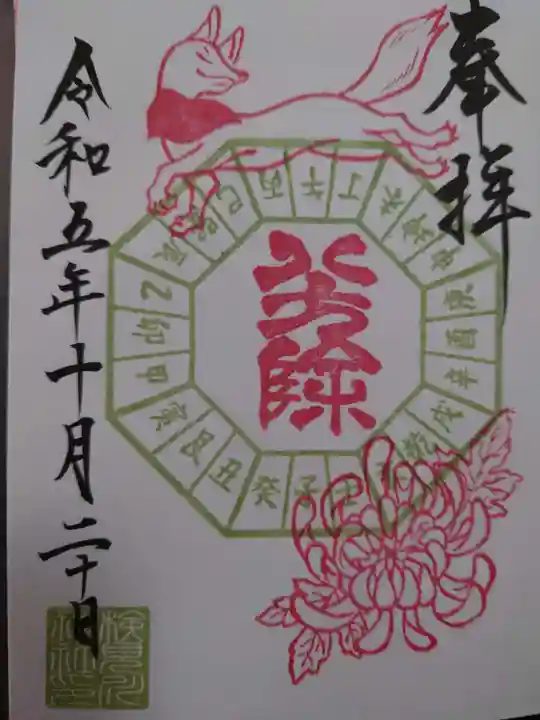 奉拝
八方除
巳 丙 午 丁 未 坤 申 庚 酉 辛 戌 乾 壬 子 癸 丑 艮 寅 甲 卯 乙 辰 巽
令和五年十月二十日
検見川
神社